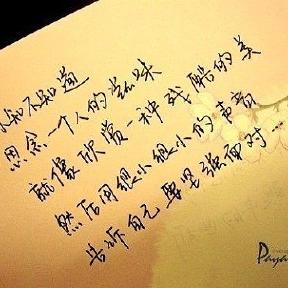 你知不知道
思念一个人的滋味
就像欣赏一种残酷的美
然后用很小很小的声音
告诉自己要坚强面对…
Paya